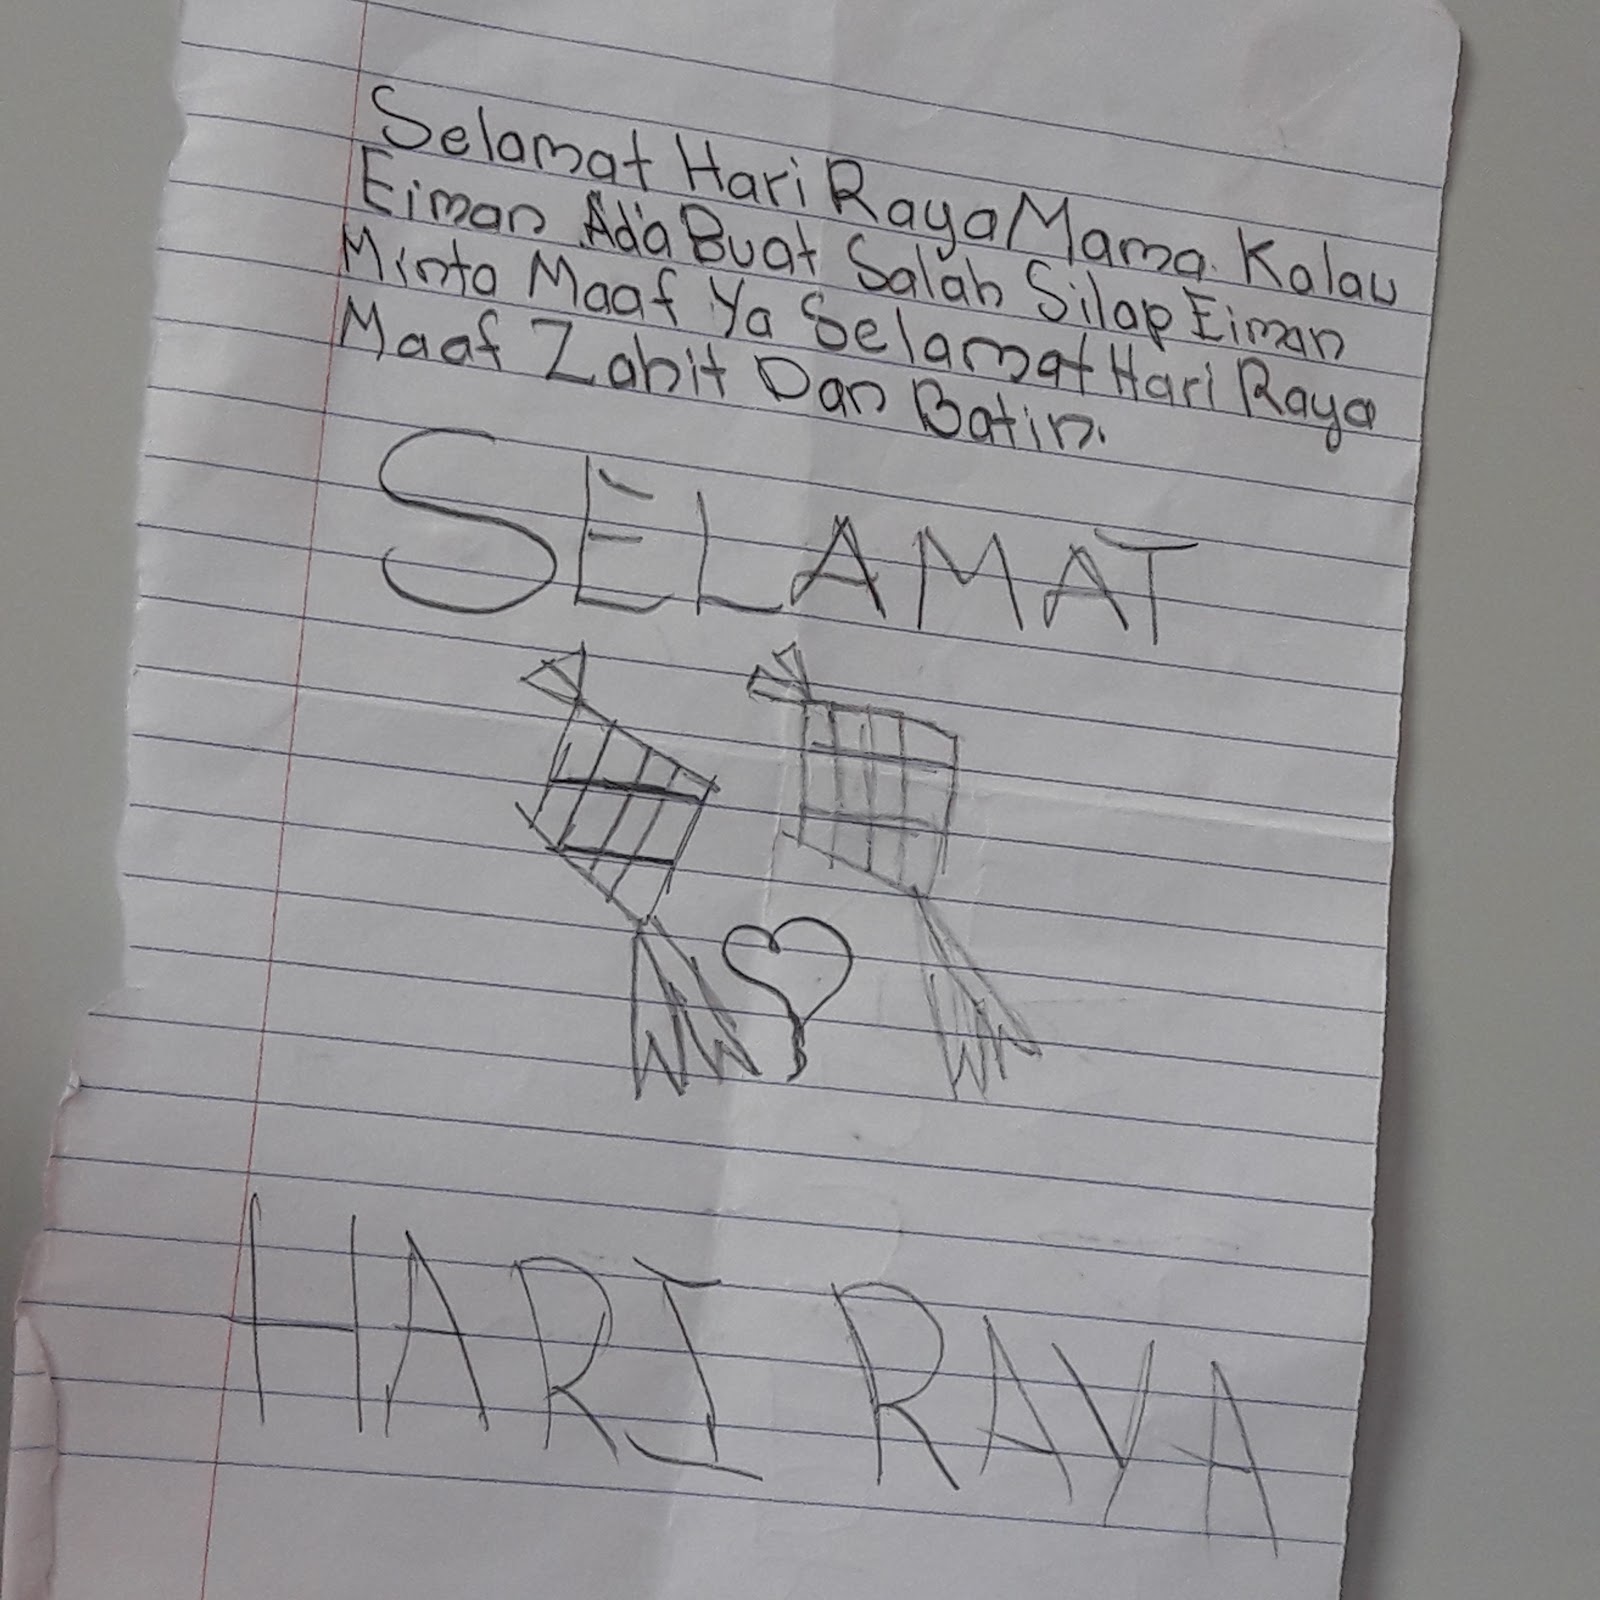 Selamat Hari Raya Mama. Kalau
Eiman Ada Buat Salah Silap Eiman
Minta Maaf Ya Selamat Hari Raya
Maaf Zahit Dan Batin.
SELAMAT
HARI RAYA